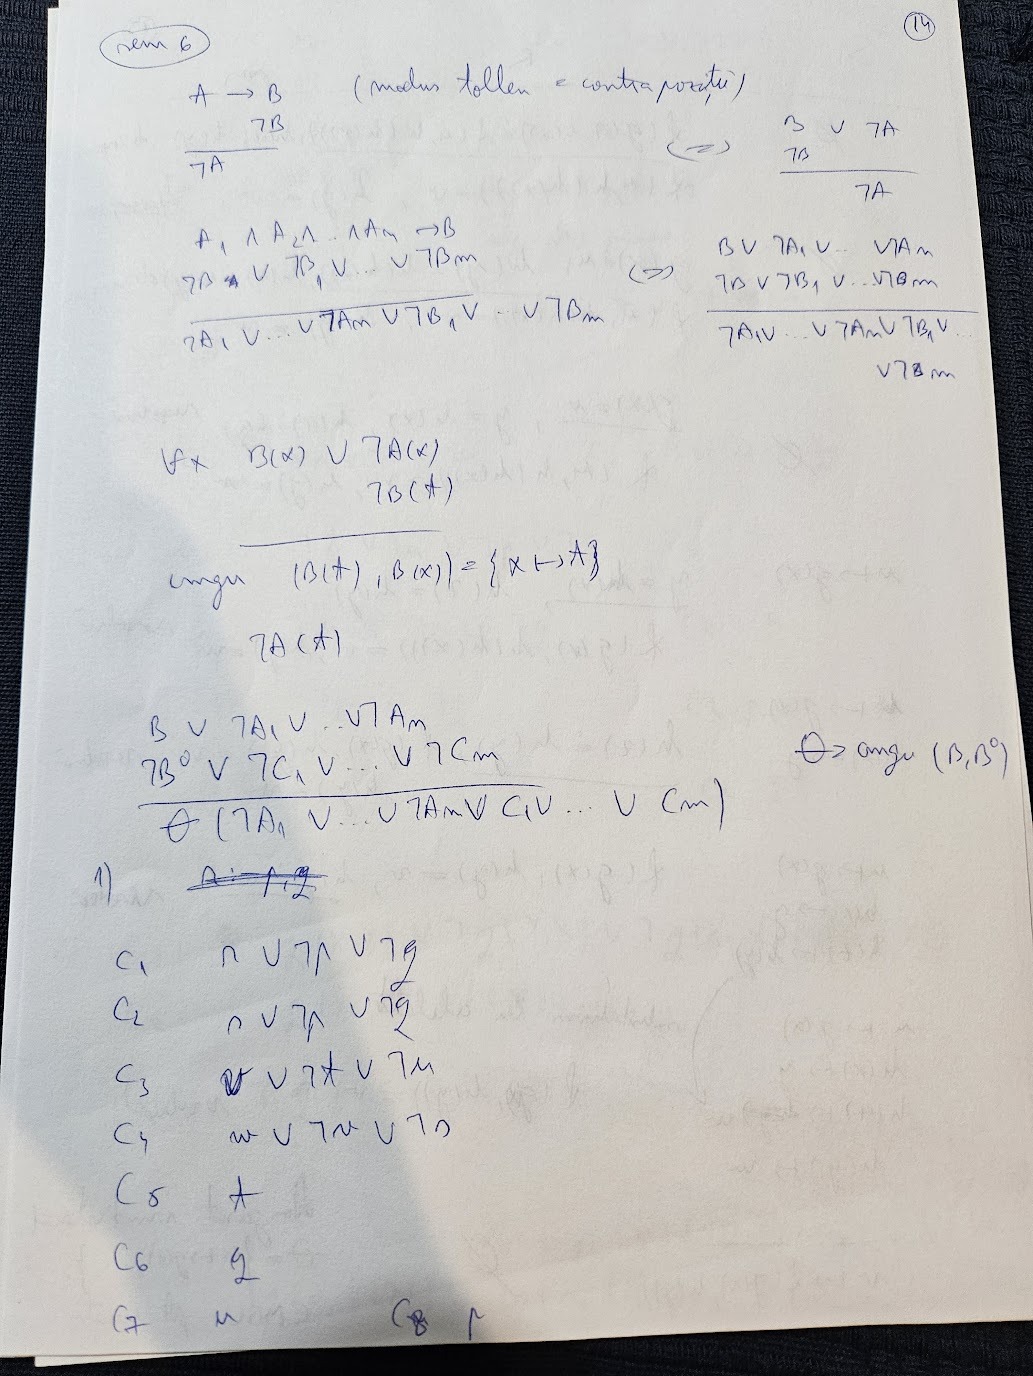 sem 6
14
A → B (modus tollen = contrapoziții)
¬B
¬A
(=)
B ∨ ¬A
¬B
¬A
A₁ ∧ A₂ ∧ .. ∧ Aₙ → B
¬B ∨ ¬B₁ ∨ ... ∨ ¬Bₘ
¬A₁ ∨ ... ∨ ¬Aₙ ∨ ¬B₁ ∨ .. ∨ ¬Bₘ
(=)
B ∨ ¬A₁ ∨ .. ∨ ¬Aₙ
¬B ∨ ¬B₁ ∨ ... ∨ ¬Bₘ
¬A₁ ∨ ... ∨ ¬Aₙ ∨ ¬B₁ ∨ ...
∨ ¬Bₘ
∀x B(x) ∨ ¬A(x)
¬B(t)
cmgu (B(t), B(x)) = {x ↦ t}
¬A(t)
B ∨ ¬A₁ ∨ .. ∨ ¬Aₙ
¬B⁰ ∨ ¬C₁ ∨ ... ∨ ¬Cₘ
θ (¬A₁ ∨ ... ∨ ¬Aₙ ∨ C₁ ∨ ... ∨ Cₘ)
θ = cmgu (B, B⁰)
1)
C₁ r ∨ ¬p ∨ ¬q
C₂ s ∨ ¬p ∨ ¬q
C₃ v ∨ ¬t ∨ ¬u
C₄ w ∨ ¬v ∨ ¬s
C5 t
C6 q
C7 u C8 p